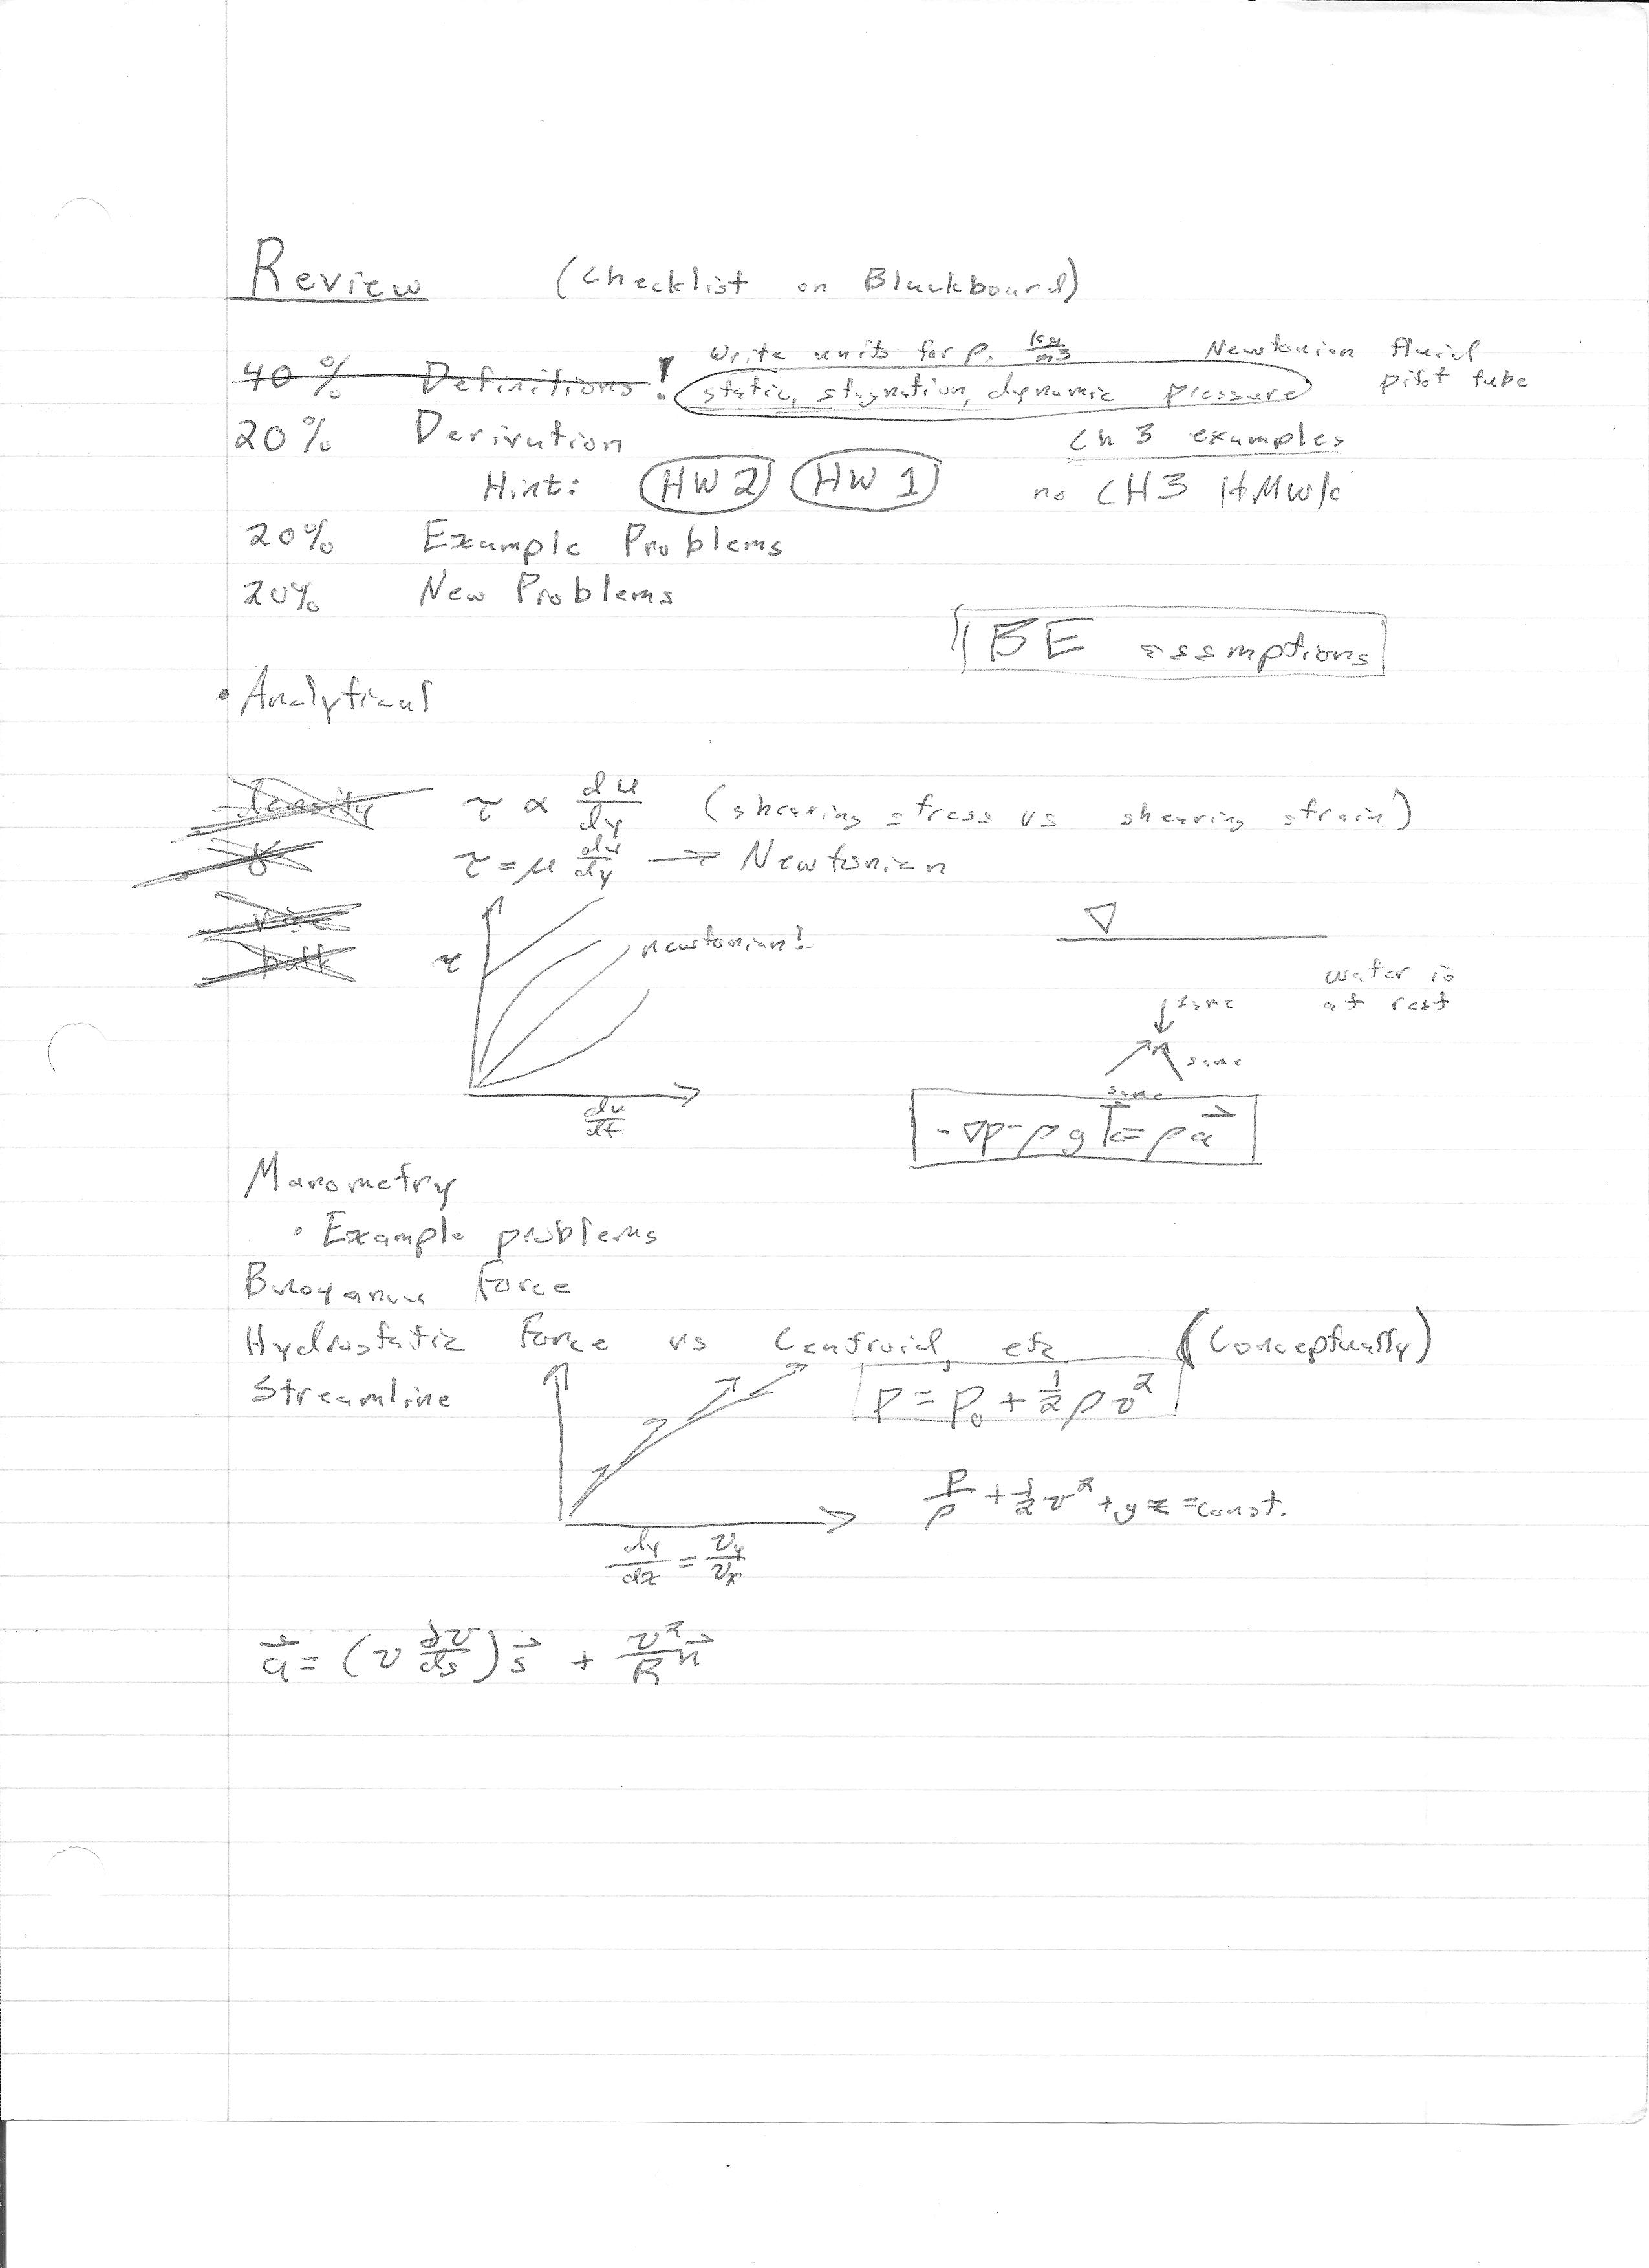 Review (Checklist on Blackboard)
Write units for ρ, kg/m3 Newtonian fluid
40% Definitions! static, stagnation, dynamic pressure pitot tube
20% Derivation Ch 3 examples
Hint: HW 2 HW 1 no CH3 HMwk
20% Example Problems
20% New Problems
BE assmptions
• Analytical
density τ ∝ du/dy (shearing stress vs shearing strain)
γ τ = μ du/dy → Newtonian
visc
bulk τ newtonian!
water is
at rest
same
same
same
du/dt
-∇p - ρg k⃗ = ρa⃗
Manometry
• Example problems
Force
Hydrostatic Force vs Centroid, etc (Conceptually)
Streamline p = p₀ + ½ρv²
p/ρ + ½v² + gz = const.
dy/dx = vy/vx
a⃗ = (v dv/ds) s⃗ + v²/R n⃗